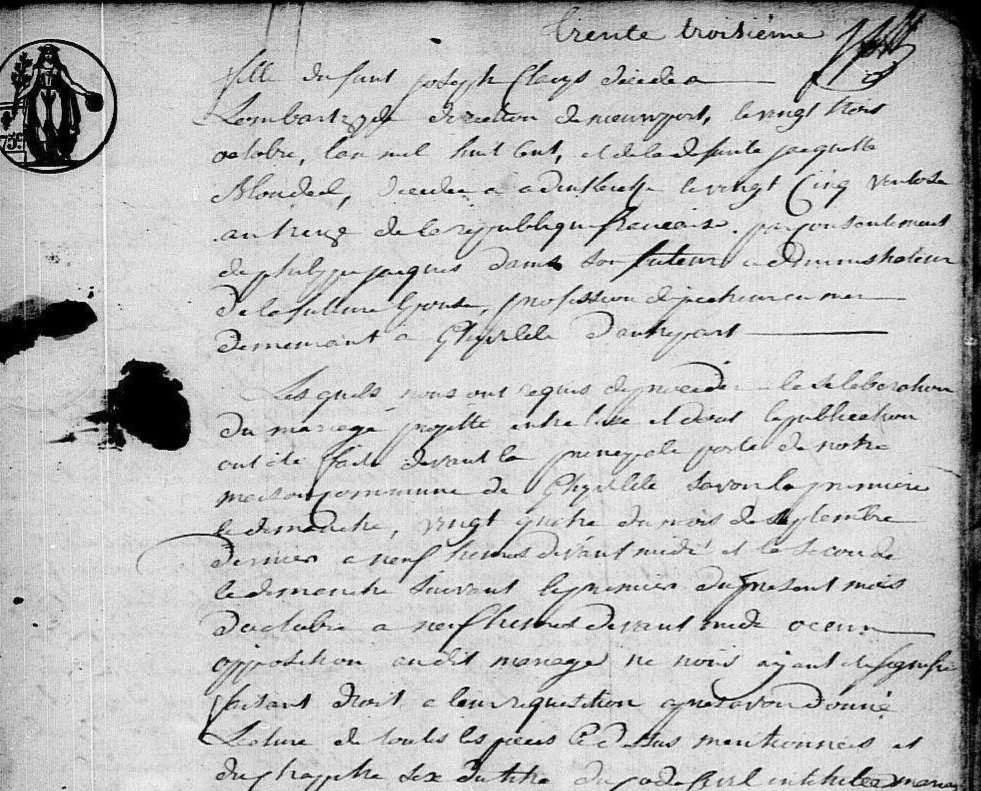 trente troisième
fille du feu Joseph Cleys décédé a
Lombartzyde direction de nieuwport, le vingt trois
octobre, l'an mil huit cent, et de la defunte jacquette
Blondeel, décedée a le vingt Cinq ventose
an treize de la république francaise. par consentement
de philippe jacques dams son tuteur administrateur
de la future Epouse, profession de pecheur en mer
demeurant a Ghyvelde d'autre part
Lesquels nous ont requis de proceder a la celebration
du mariage projetté entre eux et dont les publication
ont été faite devant la principale porte de notre
maison commune de Ghyvelde savoir la premiere
le dimanche, vingt quatre du mois de septembre
dernier a neuf heures devant midi et la seconde
le dimanche suivant le premier du present mois
d'octobre a neuf heures devant midi aucun
opposition au dit mariage ne nous ayant été signifié
faisant droit a leur requisition apres avoir donné
Lecture de toutes les pieces ci dessus mentionnées et
du chapitre six du titre du code civil intitulé mariage